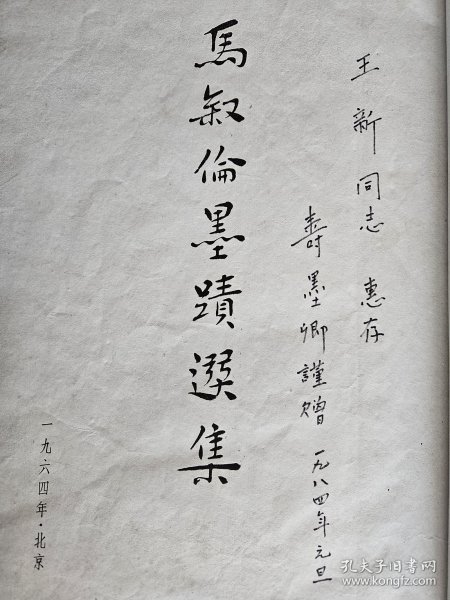 王新同志 惠存
寿墨卿謹赠 一九八四年元旦
馬叙倫墨蹟選集
一九六四年·北京
孔夫子旧书网
www.kongfz.com